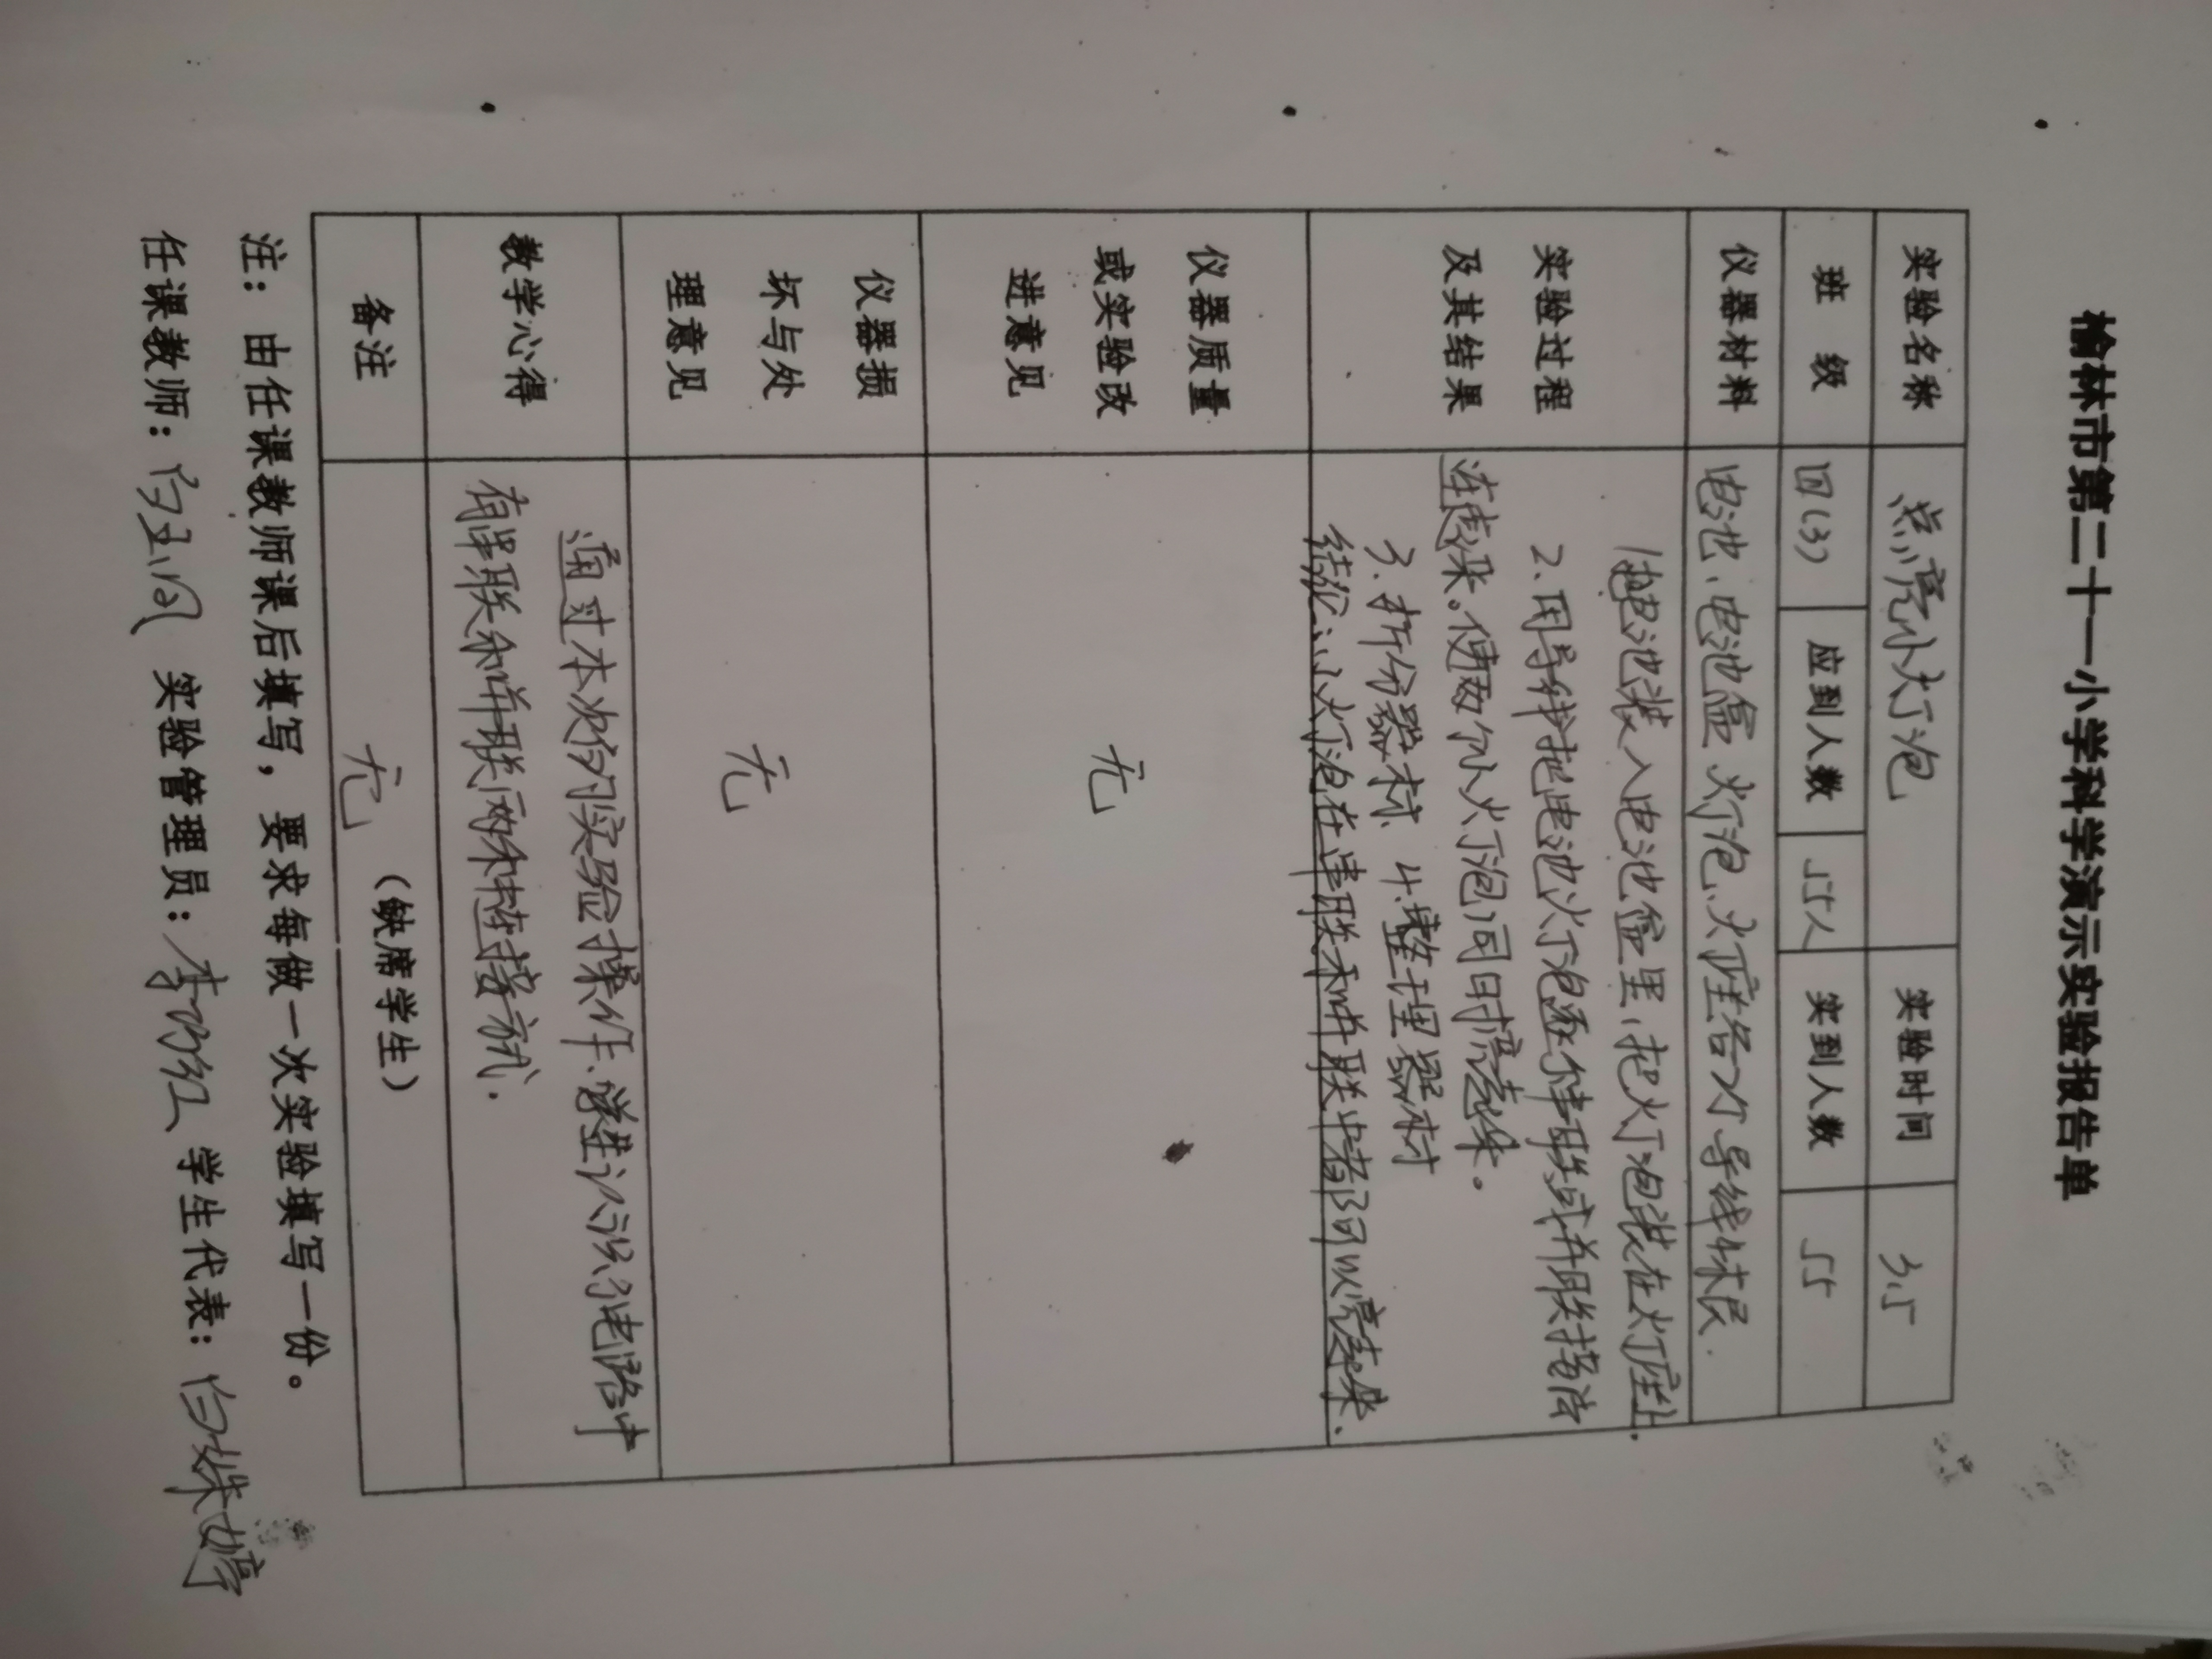 榆林市第二十一小学科学演示实验报告单
实验名称 点亮小灯泡 实验时间 3.5
班 级 四(3) 应到人数 55人 实到人数 55
仪器材料 电池、电池盒 灯泡、灯座各2个 导线
实验过程
及其结果
1.把电池装入电池盒里,把灯泡装在灯座上.
2.用导线把电池灯泡 串联或并联
连 来。使两个小灯泡同时亮起来。
3.拆分器材 4.整理器材
结论:小灯泡在串联和并联中都可以亮起来.
仪器质量
或实验改
进意见
无
仪器损
坏与处
理意见
无
教学心得
通过本次的实验操作. 认识了电路中
有串联和并联两种连接方式.
备注 无 (缺席学生)
注:由任课教师课后填写,要求每做一次实验填写一份。
任课教师: 实验管理员: 学生代表: